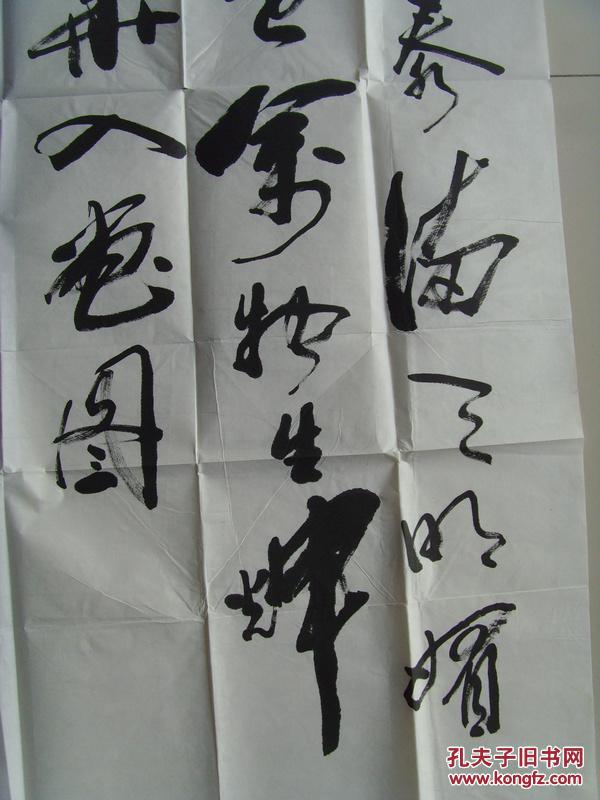 泰满天明媚
万物生辉
再入画图
孔夫子旧书网
www.kongfz.com